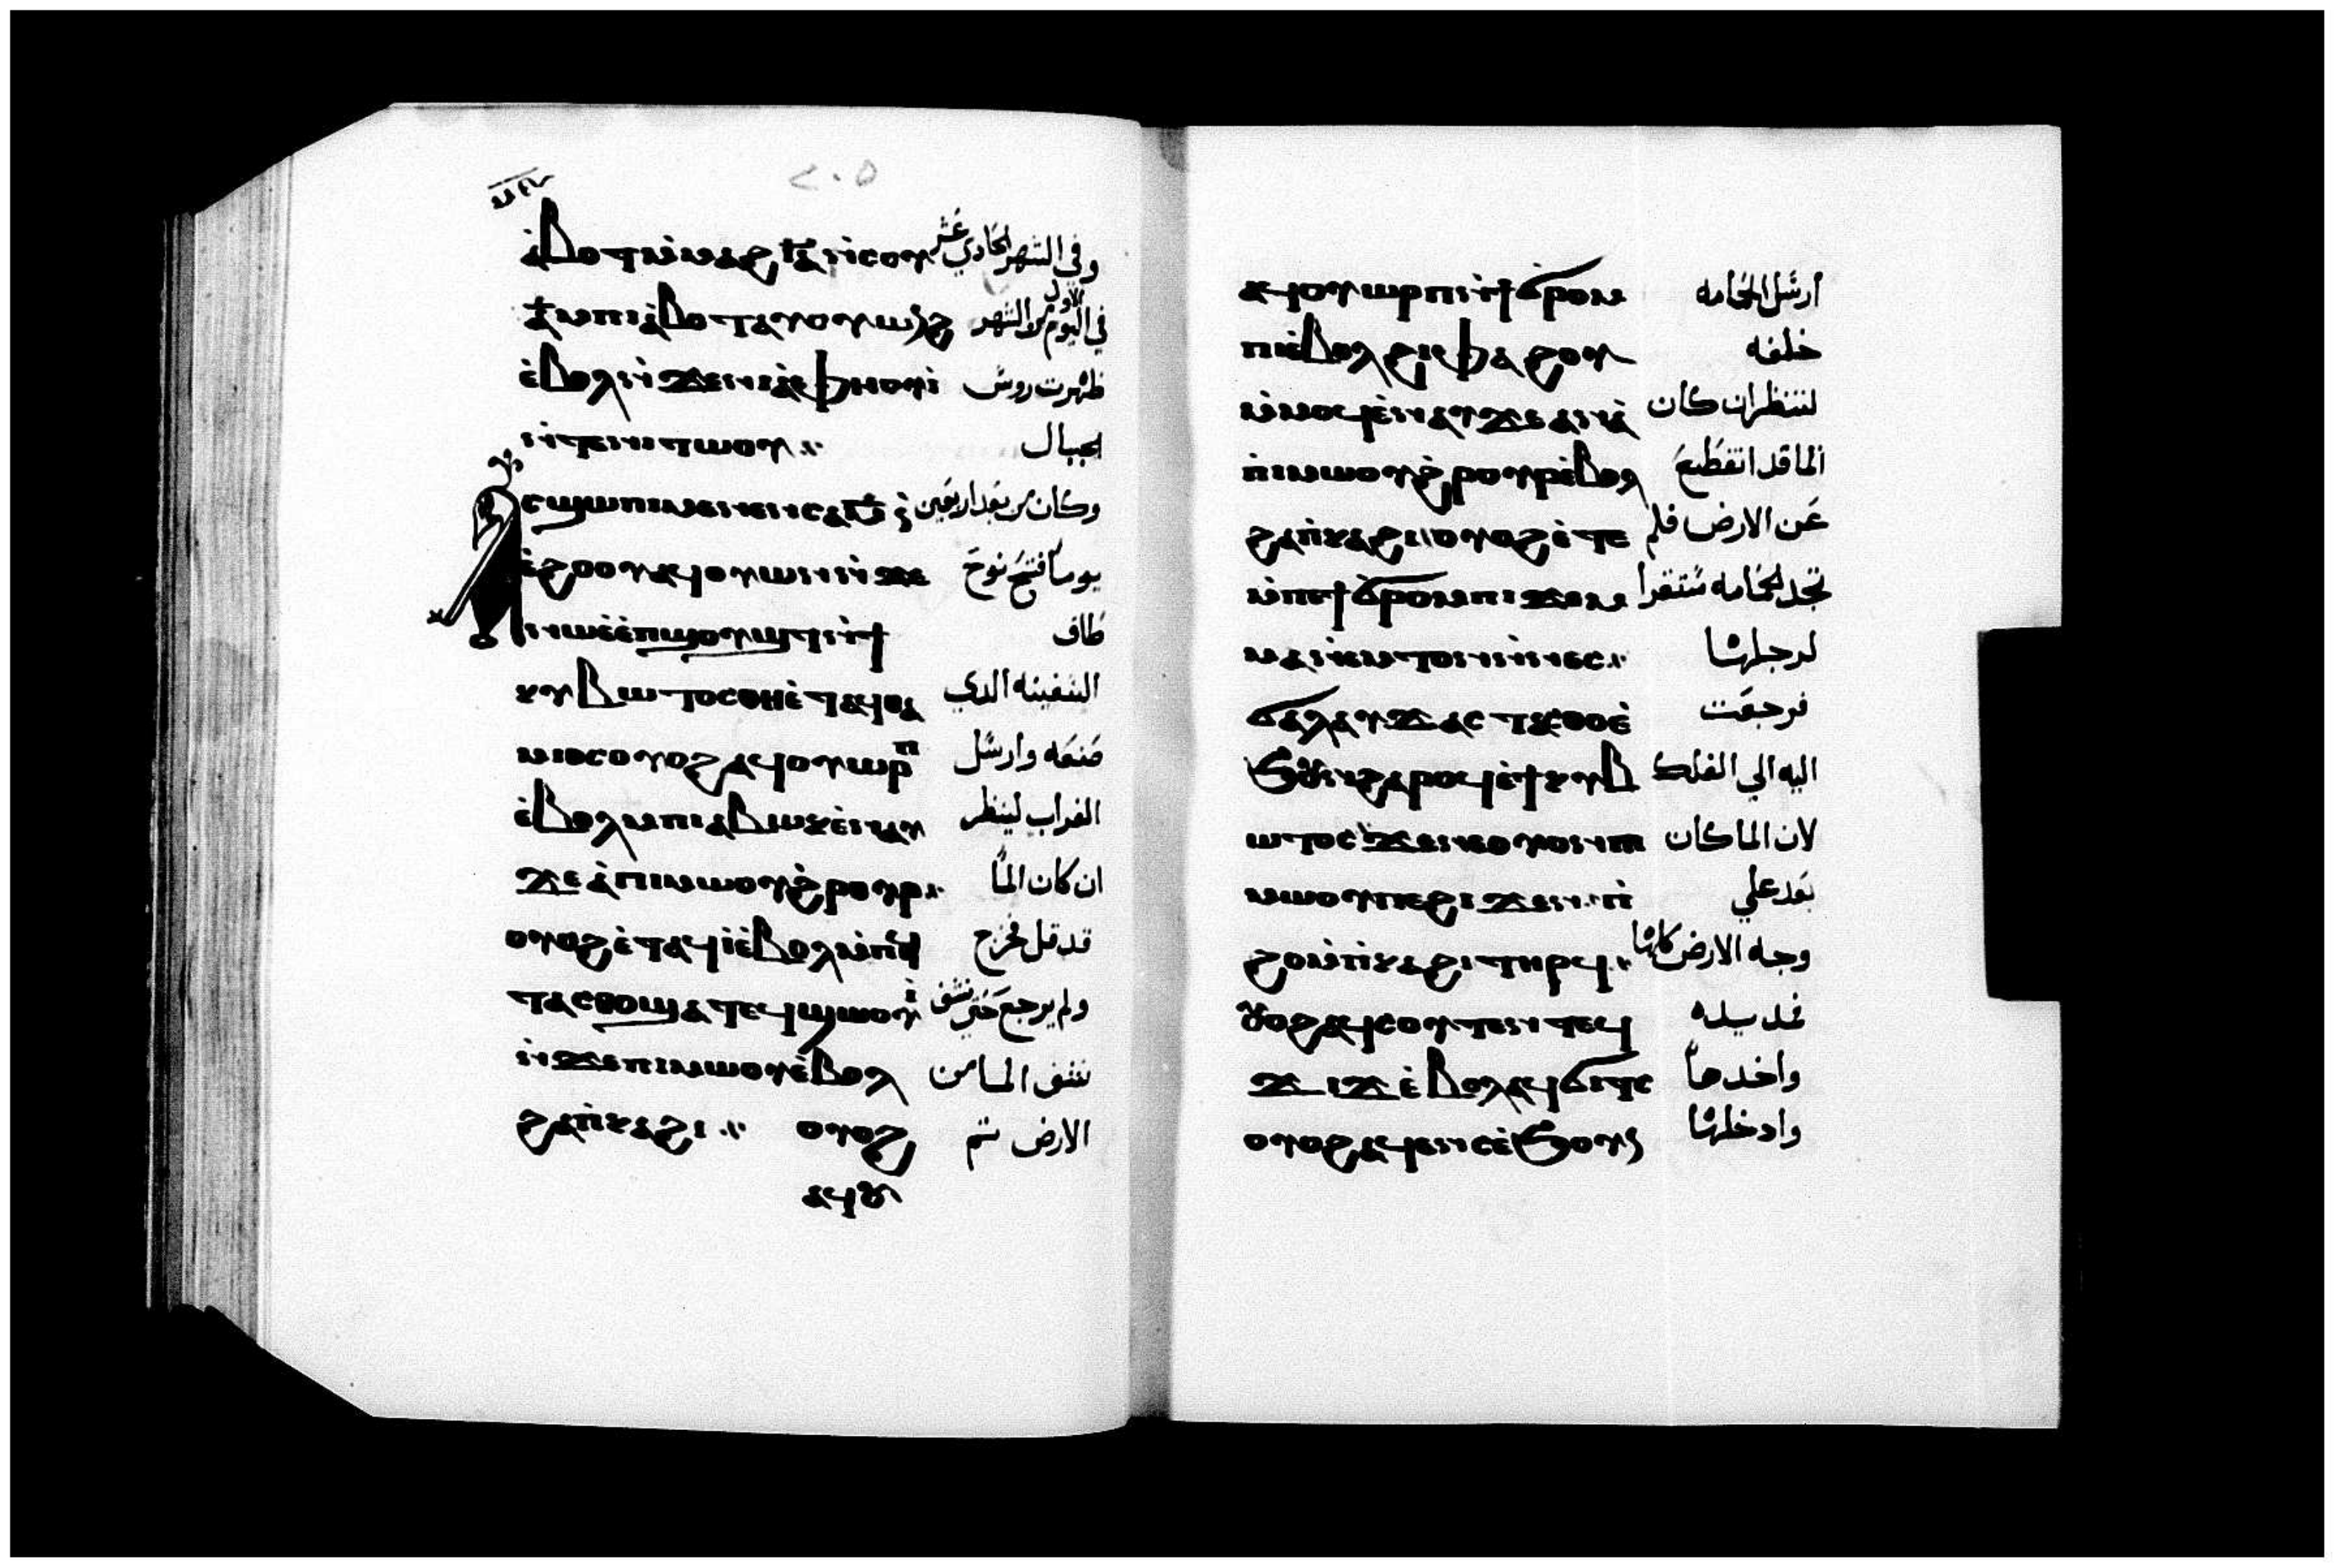 ٢٠٥
ⲁ̀ⲃⲟⲧ ⲙ̀ⲙⲁϩ ⲓ̅ⲁ̅ ⲛ̀ⲥⲟⲩ وفي الشهر الحادي عشر
ⲁ̅ ⲙⲡⲓⲁ̀ⲃⲟⲧ ⲁⲩⲟⲩⲱⲛϩ في اليوم الاول من الشهر
ⲉ̀ⲃⲟⲗ ⲛ̀ϫⲉⲛⲓⲁ̀ⲫⲏⲟⲩⲓ̀ ظهرت روس
ⲛ̀ⲧⲉⲛⲓⲧⲱⲟⲩ الجبال
ⲁⲥϣⲱⲡⲓ ⲙⲉⲛⲉⲛⲥⲁ ⲙ̅ ⲛ̀ وكان من بعد اربعين
ⲉ̀ϩⲟⲟⲩ ⲁϥⲟⲩⲱⲛ ⲛ̀ϫⲉ يوما فتح نوح
ⲛⲱⲉ̀ ⲉ̀ⲡϣⲟⲩϣⲧ ⲛ̀ϯ طاق
ⲕⲩⲃⲱⲧⲟⲥ ⲑⲏⲉ̀ⲧⲁϥⲑⲁ السفينه الدي
ⲙⲓⲟⲥ ⲟⲩⲟϩ ⲁϥⲟⲩⲱⲣⲡ صنعه وارسل
ⲉ̀ⲃⲟⲗ ⲙⲡⲓⲁⲃⲱⲕ ⲉ̀ⲛⲁⲩ الغراب لينظر
ϫⲉ ⲁ̀ⲡⲓⲙⲱⲟⲩ ϩ̀ⲣⲟⲩⲣ ان كان الما
ⲟⲩⲟϩ ⲉ̀ⲧⲁϥⲓ̀ ⲉ̀ⲃⲟⲗ ⲙ̀ⲡⲉϥ قد قل فخرج
ⲧⲁⲥⲑⲟ ϣⲁⲧⲉϥϣⲱⲟⲩⲓ̀ ولم يرجع حتي نشف
ⲛ̀ϫⲉⲡⲓⲙⲱⲟⲩ ⲉ̀ⲃⲟⲗ نشف الما من
ϩⲁⲡ̀ⲕⲁϩⲓ ⲟⲩⲟϩ الارض تم
ⲁϥⲟⲩ
ⲁϥⲟⲩⲱⲣⲡ ⲛ̀ϯϭⲣⲟⲙ ارسل الحمامه
ⲡⲓ ⲉ̀ⲃⲟⲗ ϩⲓⲫⲁϩⲟⲩ خلفه
ⲙ̀ⲙⲟϥ ⲉ̀ⲛⲁⲩ ϫⲉ ⲁⲛ ⲁ̀ لننظر ان كان
ⲡⲓⲙⲱⲟⲩ ϩ̀ⲣⲟⲩⲣ ⲉ̀ⲃⲟⲗ الما قد انقطع
ϩⲁⲡ̀ⲕⲁϩⲓ ⲟⲩⲟϩ ⲉ̀ⲧⲉ عن الارض فلم
ⲙ̀ⲡⲉϯϭⲣⲟⲙⲡⲓ ϫⲉⲙ تجد الحمامه مستقرا
ⲙⲁⲛⲉⲙⲧⲟⲛ ⲛ̀ⲛⲉⲥ لرجليها
ϭⲁⲗⲁⲩϫ ⲁⲥⲧⲁⲥⲑⲟ ⲉ̀ فرجعت
ϧⲟⲩⲛ ϩⲁⲣⲟϥ ⲉ̀ϯⲕⲩⲃ اليه الي الفلك
ⲱⲧⲟⲥ ϫⲉ ⲛⲉ ⲟⲩⲟⲛ ⲡⲓ لان الما كان
ⲙⲱⲟⲩ ⲡⲉ ϩⲓϫⲉⲛ ⲡ̀ بعد علي
ϩⲟ ⲙ̀ⲡ̀ⲕⲁϩⲓ ⲧⲏⲣϥ وجه الارض كلها
ⲟⲩⲟϩ ⲁϥⲥⲟⲩⲧⲉⲛ ⲧⲉϥ فمد يده
ϫⲓϫ ⲉ̀ⲃⲟⲗ ⲁϥϭⲓⲧⲥ واخدها
ⲟⲩⲟϩ ⲁϥⲉⲛⲥ ⲉ̀ϧⲟⲩⲛ وادخلها